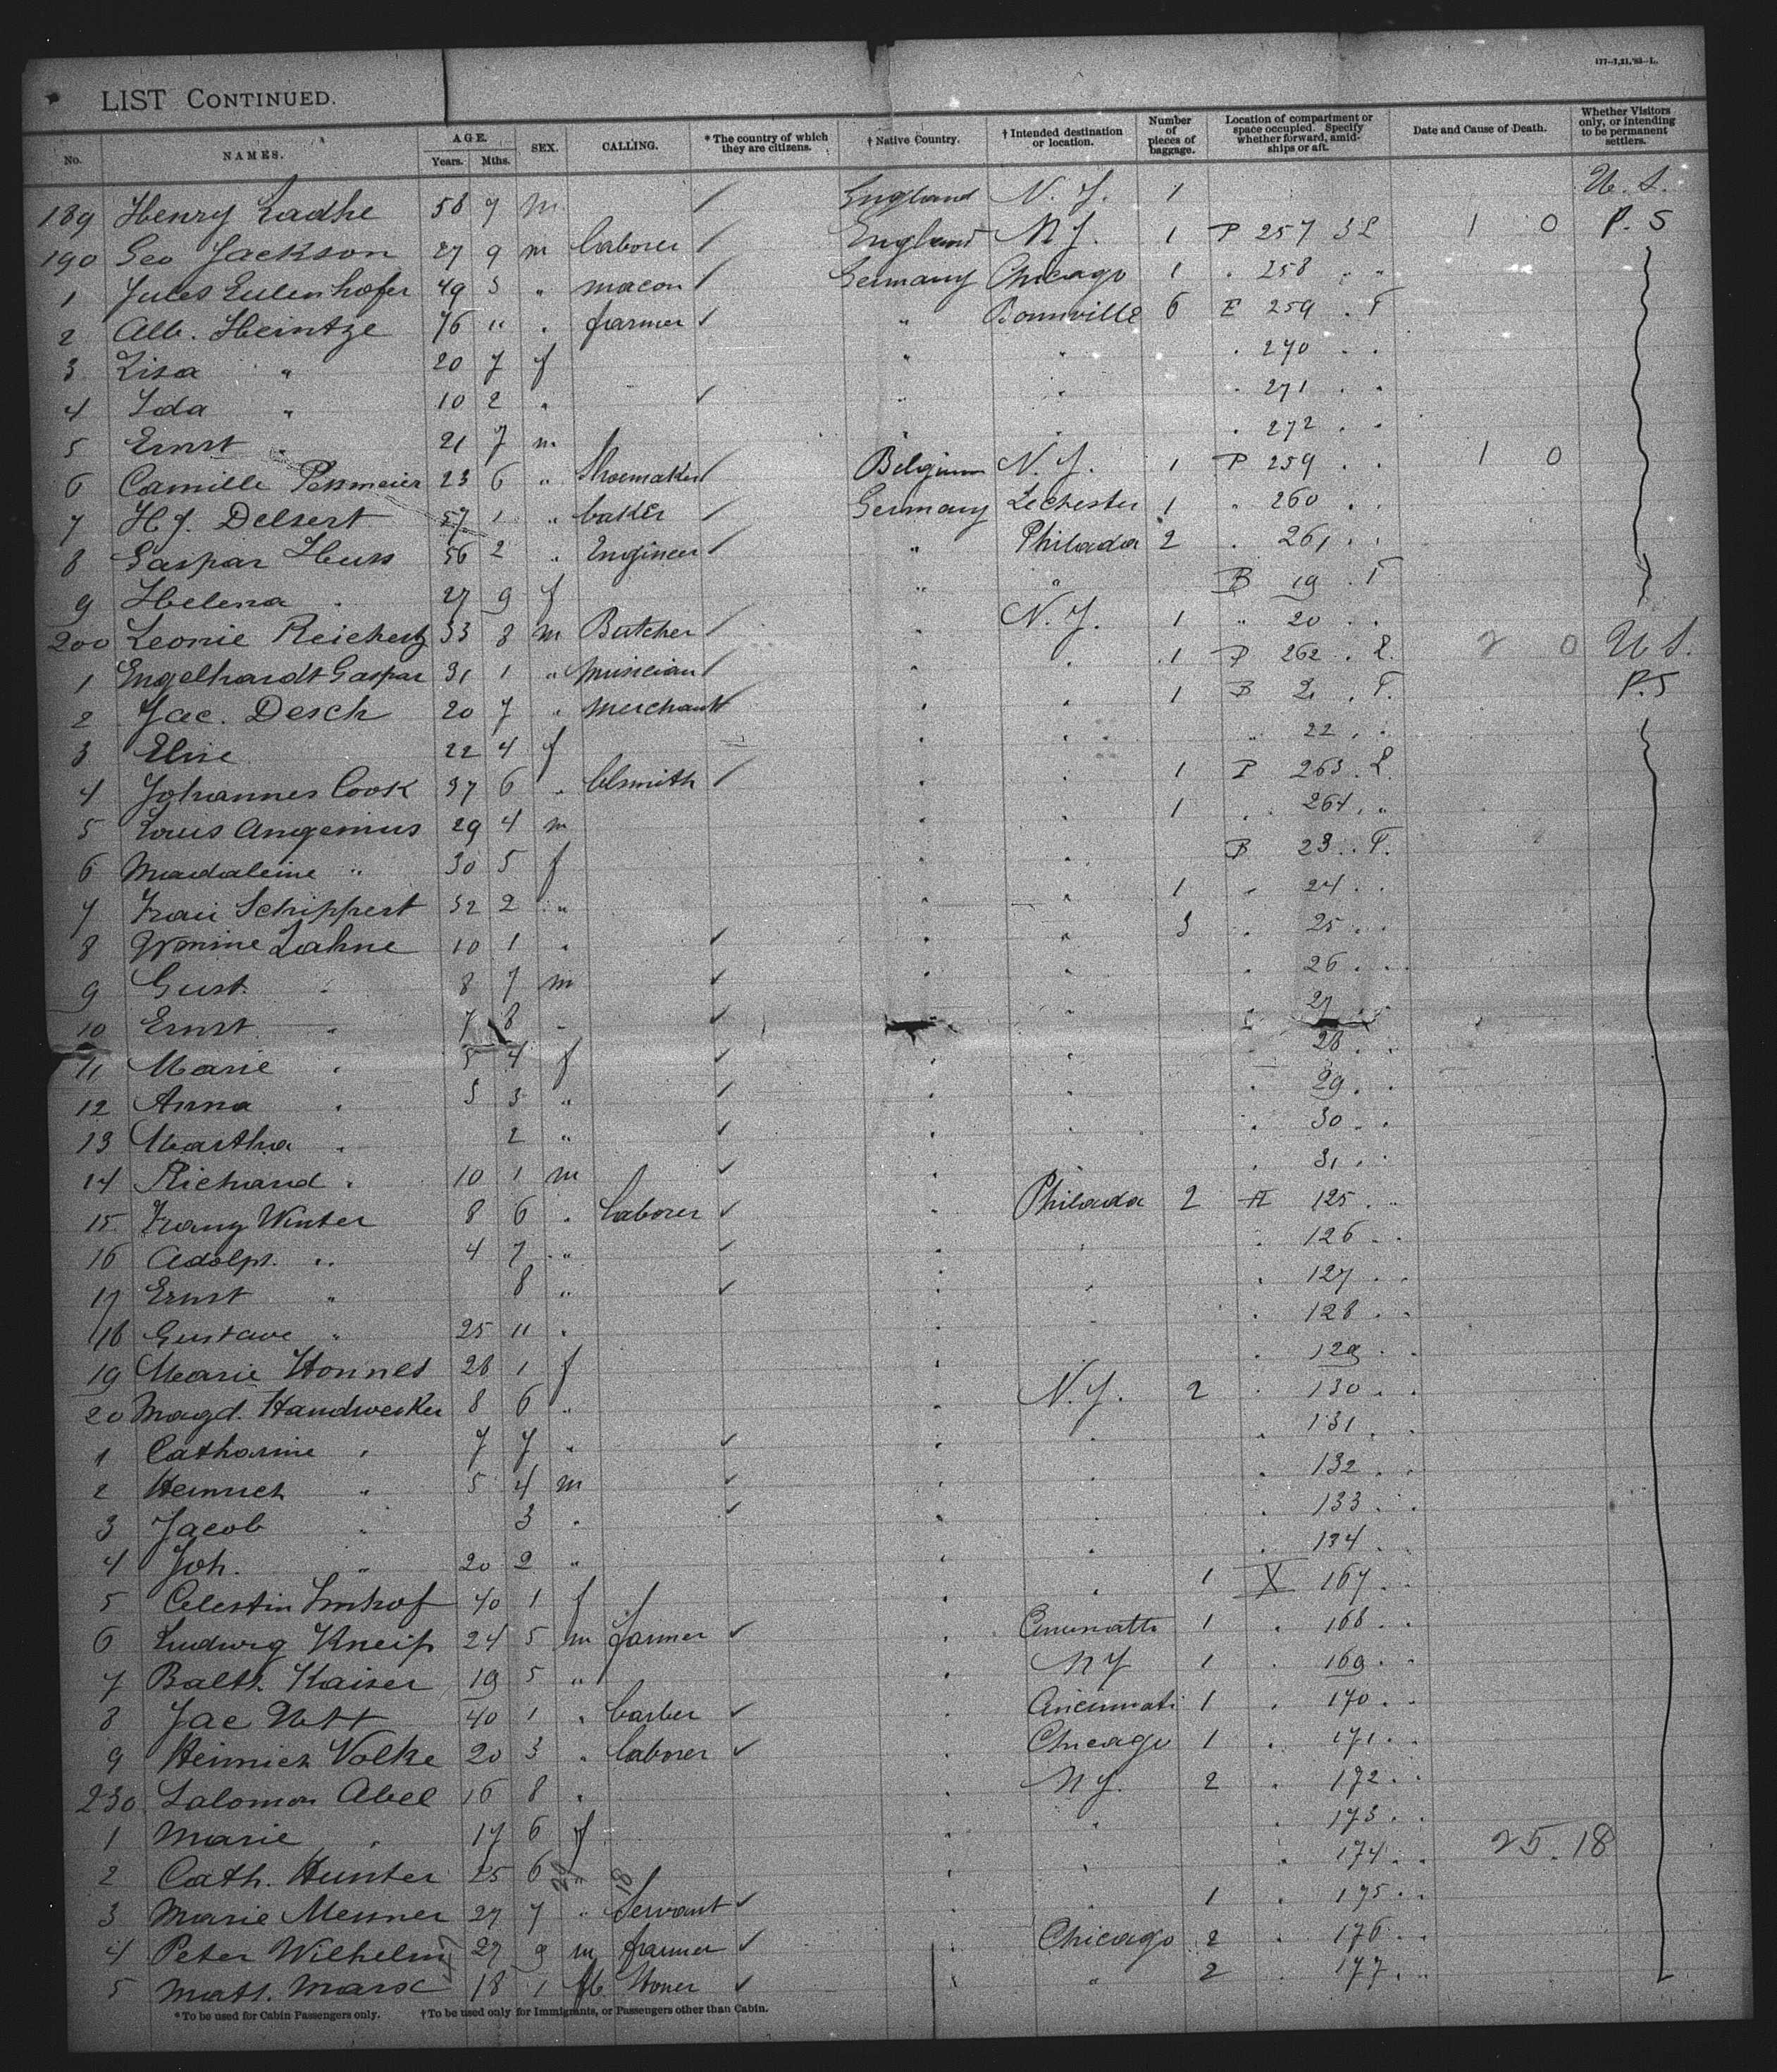 177—7,21,'93—L.
LIST CONTINUED.
No. NAMES. AGE. Years. Mths. SEX. CALLING. *The country of which they are citizens. †Native Country. †Intended destination or location. Number of pieces of baggage. Location of compartment or space occupied. Specify whether forward, amidships or aft. Date and Cause of Death. Whether Visitors only, or intending to be permanent settlers.
189 Henry 58 9 m ✓ England N. Y. 1 U. S.
190 Geo Jackson 27 9 m laborer ✓ England N Y. 1 P 257 1 0 P. S
1 Jules Eulenhofer 49 3 " macon ✓ Germany Chicago 1 . 258 . .
2 Alb. Heintze 46 " . farmer ✓ " Bonnville 6 E 259 . F
3 Lisa " 20 7 f " " . 270 . .
4 Ida " 10 2 . ✓ " . . 271 . .
5 Ernst . 21 7 m . . . 272 . .
6 Camille 23 6 " Shoemaker ✓ Belgium N. Y. 1 P 259 . . 1 0
7 H. J. Delsert 57 1 " baker ✓ Germany Lechester 1 " 260 . .
8 Gaspar Huss 56 2 . Engineer ✓ " Philada 2 . 261 . .
9 Helena . 27 9 f " " B 19 . F
200 Leonie Reichertz 33 8 m Butcher ✓ . N. Y. 1 " 20 . .
1 Engelhardt Gaspar 31 1 " musician ✓ . . 1 P 262 . L. 2 0 U S.
2 Jac. Desch 20 7 " merchant ✓ . . 1 B 21 . F. P. S
3 Elise 22 4 f . . " 22 . .
4 Johannes Cook 37 6 . blsmith ✓ . . 1 P 263 . L.
5 Louis Angenius 29 4 m . . 1 . 264 . "
6 Madaleine " 30 5 f . . B 23 . F.
7 Frau Schippert 32 2 " . . 1 " 24 . .
8 Lahne 10 1 . ✓ . " 3 . 25 . .
9 Gust. . 8 7 m ✓ . . . 26 . .
10 Ernst . 7 8 . ✓ . 27
11 Marie . 5 4 f ✓ . . 28 . .
12 Anna . 3 3 " ✓ . . . 29 . .
13 Martha . 2 " ✓ . . . 30 . .
14 Richard . 10 1 m ✓ . . 31 . .
15 Franz Winter 8 6 . laborer ✓ . Philada 2 H 125 . .
16 Adolph. " 4 7 " ✓ . . . 126 . .
17 Ernst " 8 " ✓ . . . 127 . .
18 Gustave " 25 11 . . . . 128 . .
19 Marie Honnes 28 1 f . . 129 . .
20 Magd. Handwerker 8 6 " N. Y. 2 . 130 . .
1 Catharine . 7 7 " ✓ . . . 131 . .
2 Heinrich " 5 4 m ✓ . . . 132 . .
3 Jacob . 3 . ✓ . . . 133 . .
4 Joh. " 20 2 " . . . 134 .
5 Celestin Imhof 40 1 f . . 1 X 167 . .
6 Ludwig Kneip 24 5 m farmer ✓ . Cinnatti 1 . 168 . .
7 Balth. Kaiser 19 5 " . N Y 1 . 169 . .
8 Jac Nett 40 1 . barber ✓ Cincinnati 1 . 170 . .
9 Heinrich Volke 20 3 . laborer ✓ . Chicago 1 . 171 . .
230 Salomon Abel 16 8 . . N Y. 2 . 172 . .
1 Marie . 17 6 f . . . 173 . .
2 Cath. Hunter 25 6 " . . . 174 . . 25. 18
3 Marie Messner 27 7 " Servant ✓ . . 1 . 175 . .
4 Peter Wilhelm 27 9 m farmer ✓ . Chicago 2 . 176 . .
5 Matt. Marx 18 1 ✓ . " 2 . 177 . .
*To be used for Cabin Passengers only. †To be used only for Immigrants, or Passengers other than Cabin.